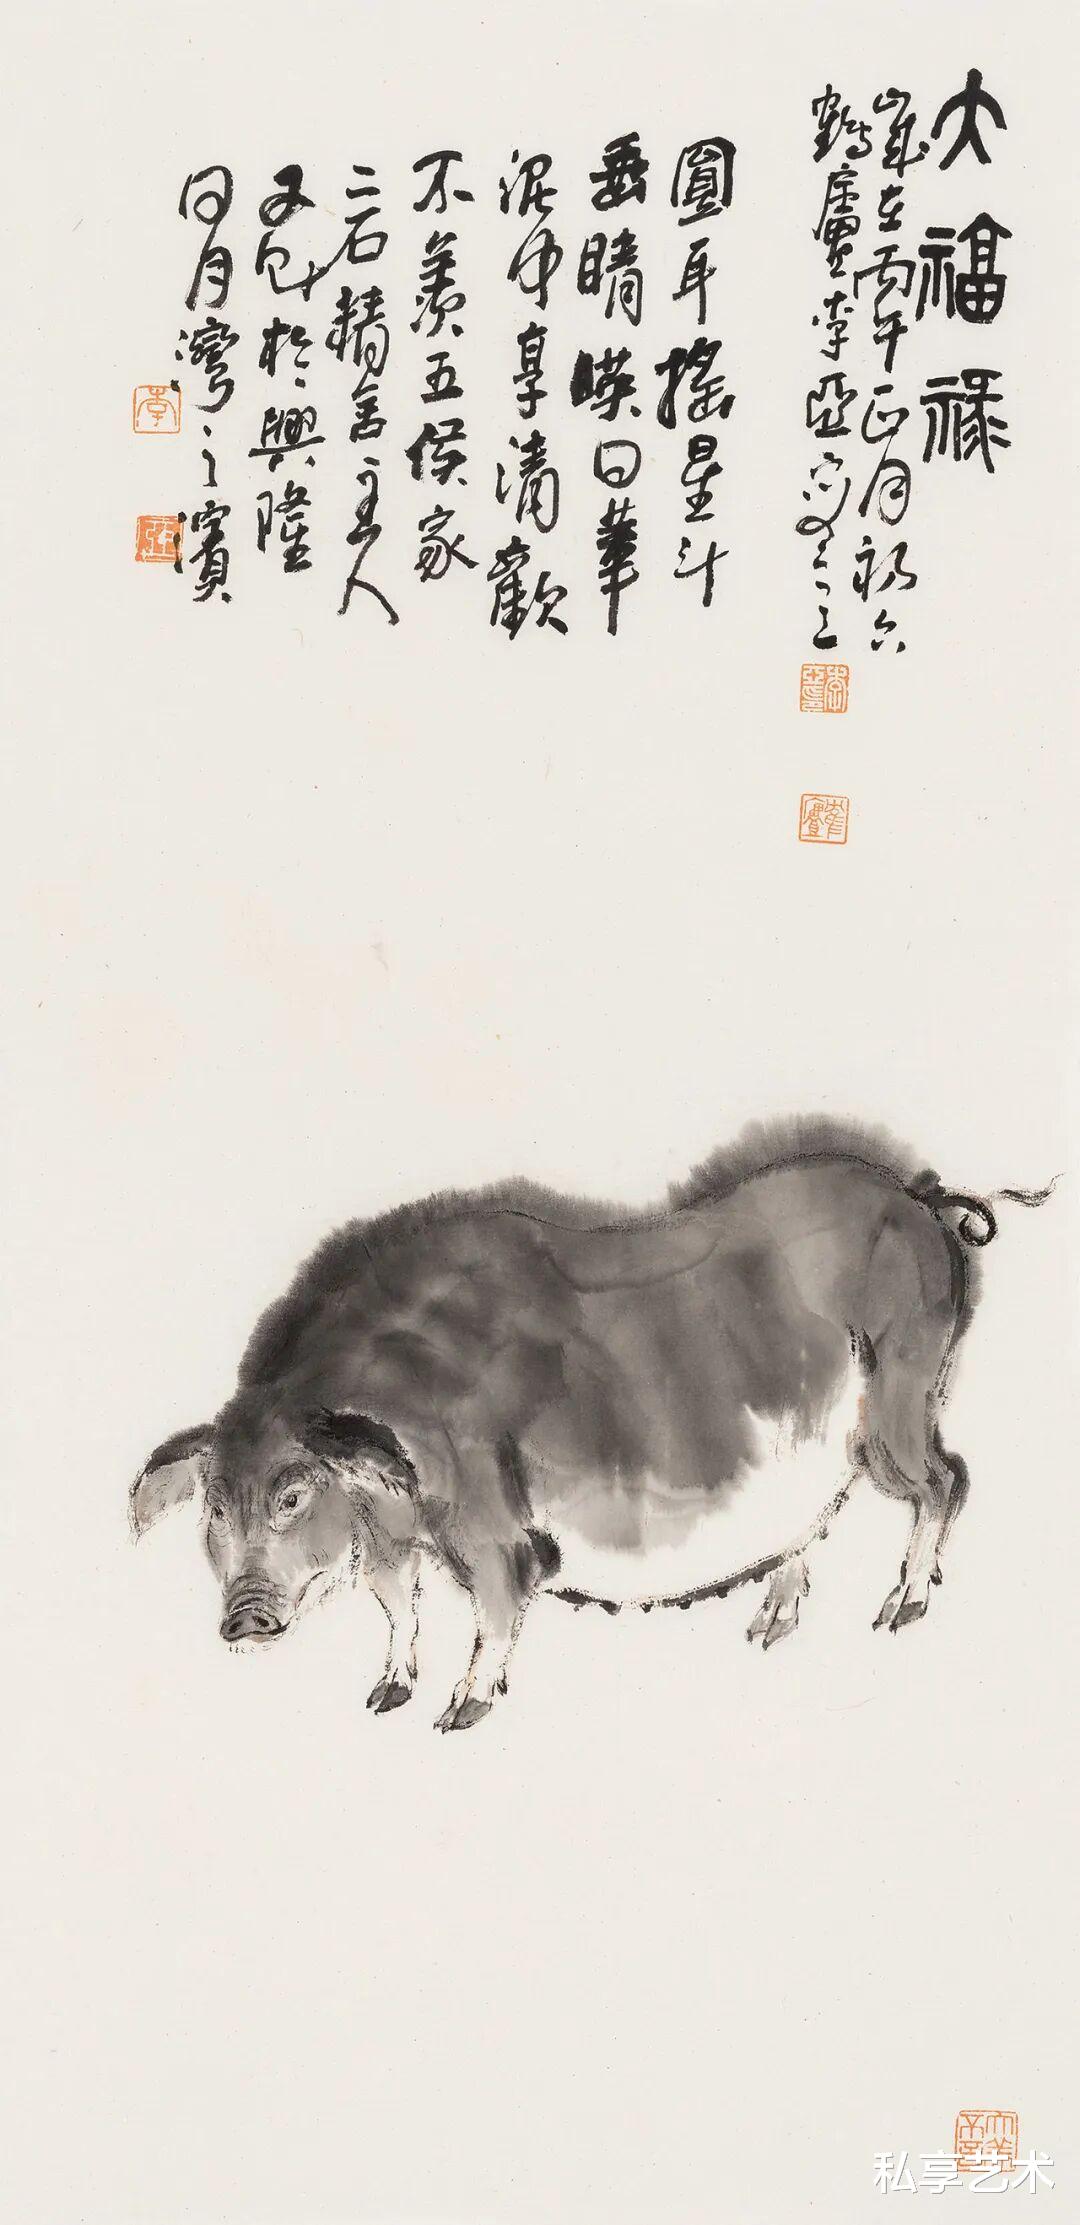 大福禄
歲在丙午正月初六
鶴廬李亞寫之
圓耳搖星斗
垂睛暎日華
泥中享清歡
不羨五侯家
二石精舍主人
又記於興隆
日月灣之濱
李
亞
私享艺术